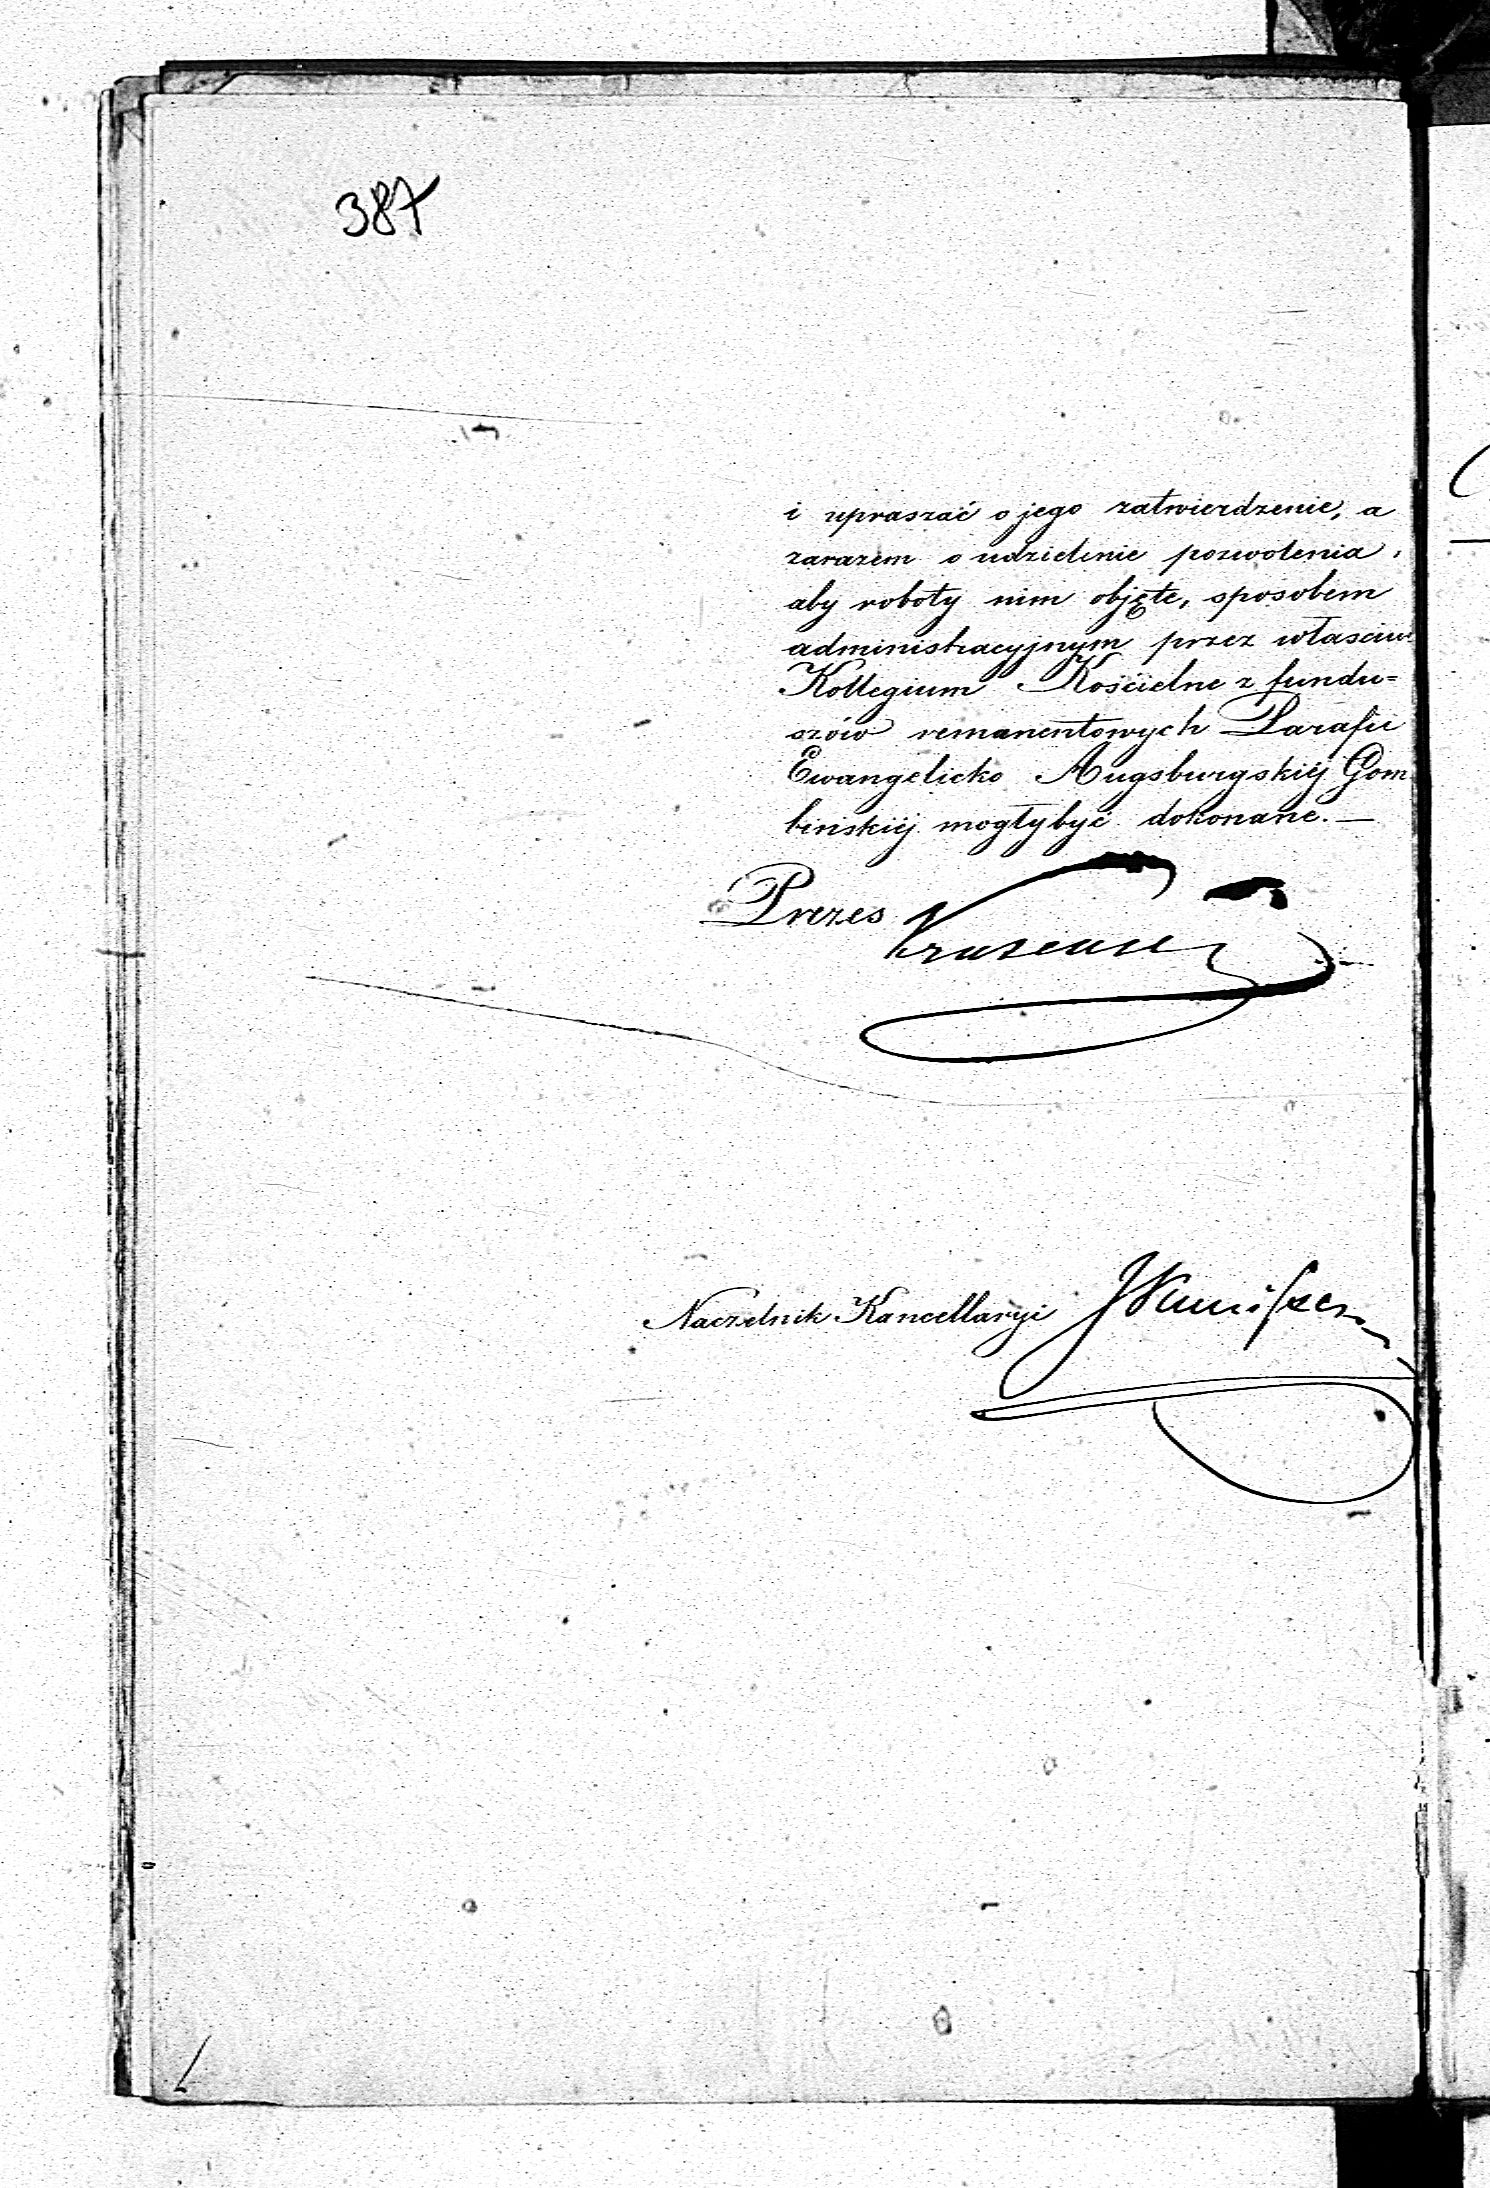 387
i upraszać o jego zatwierdzenie, a
zarazem o udzielenie pozwolenia,
aby roboty nim objęte, sposobem
administracyjnym przez właściwe
Kollegium Kościelne z fundu=
szów remanentowych Parafii
Ewangelicko Augsburgskiéj Gom
bińskiéj mogły być dokonane. —
Prezes
Naczelnik Kancellaryi